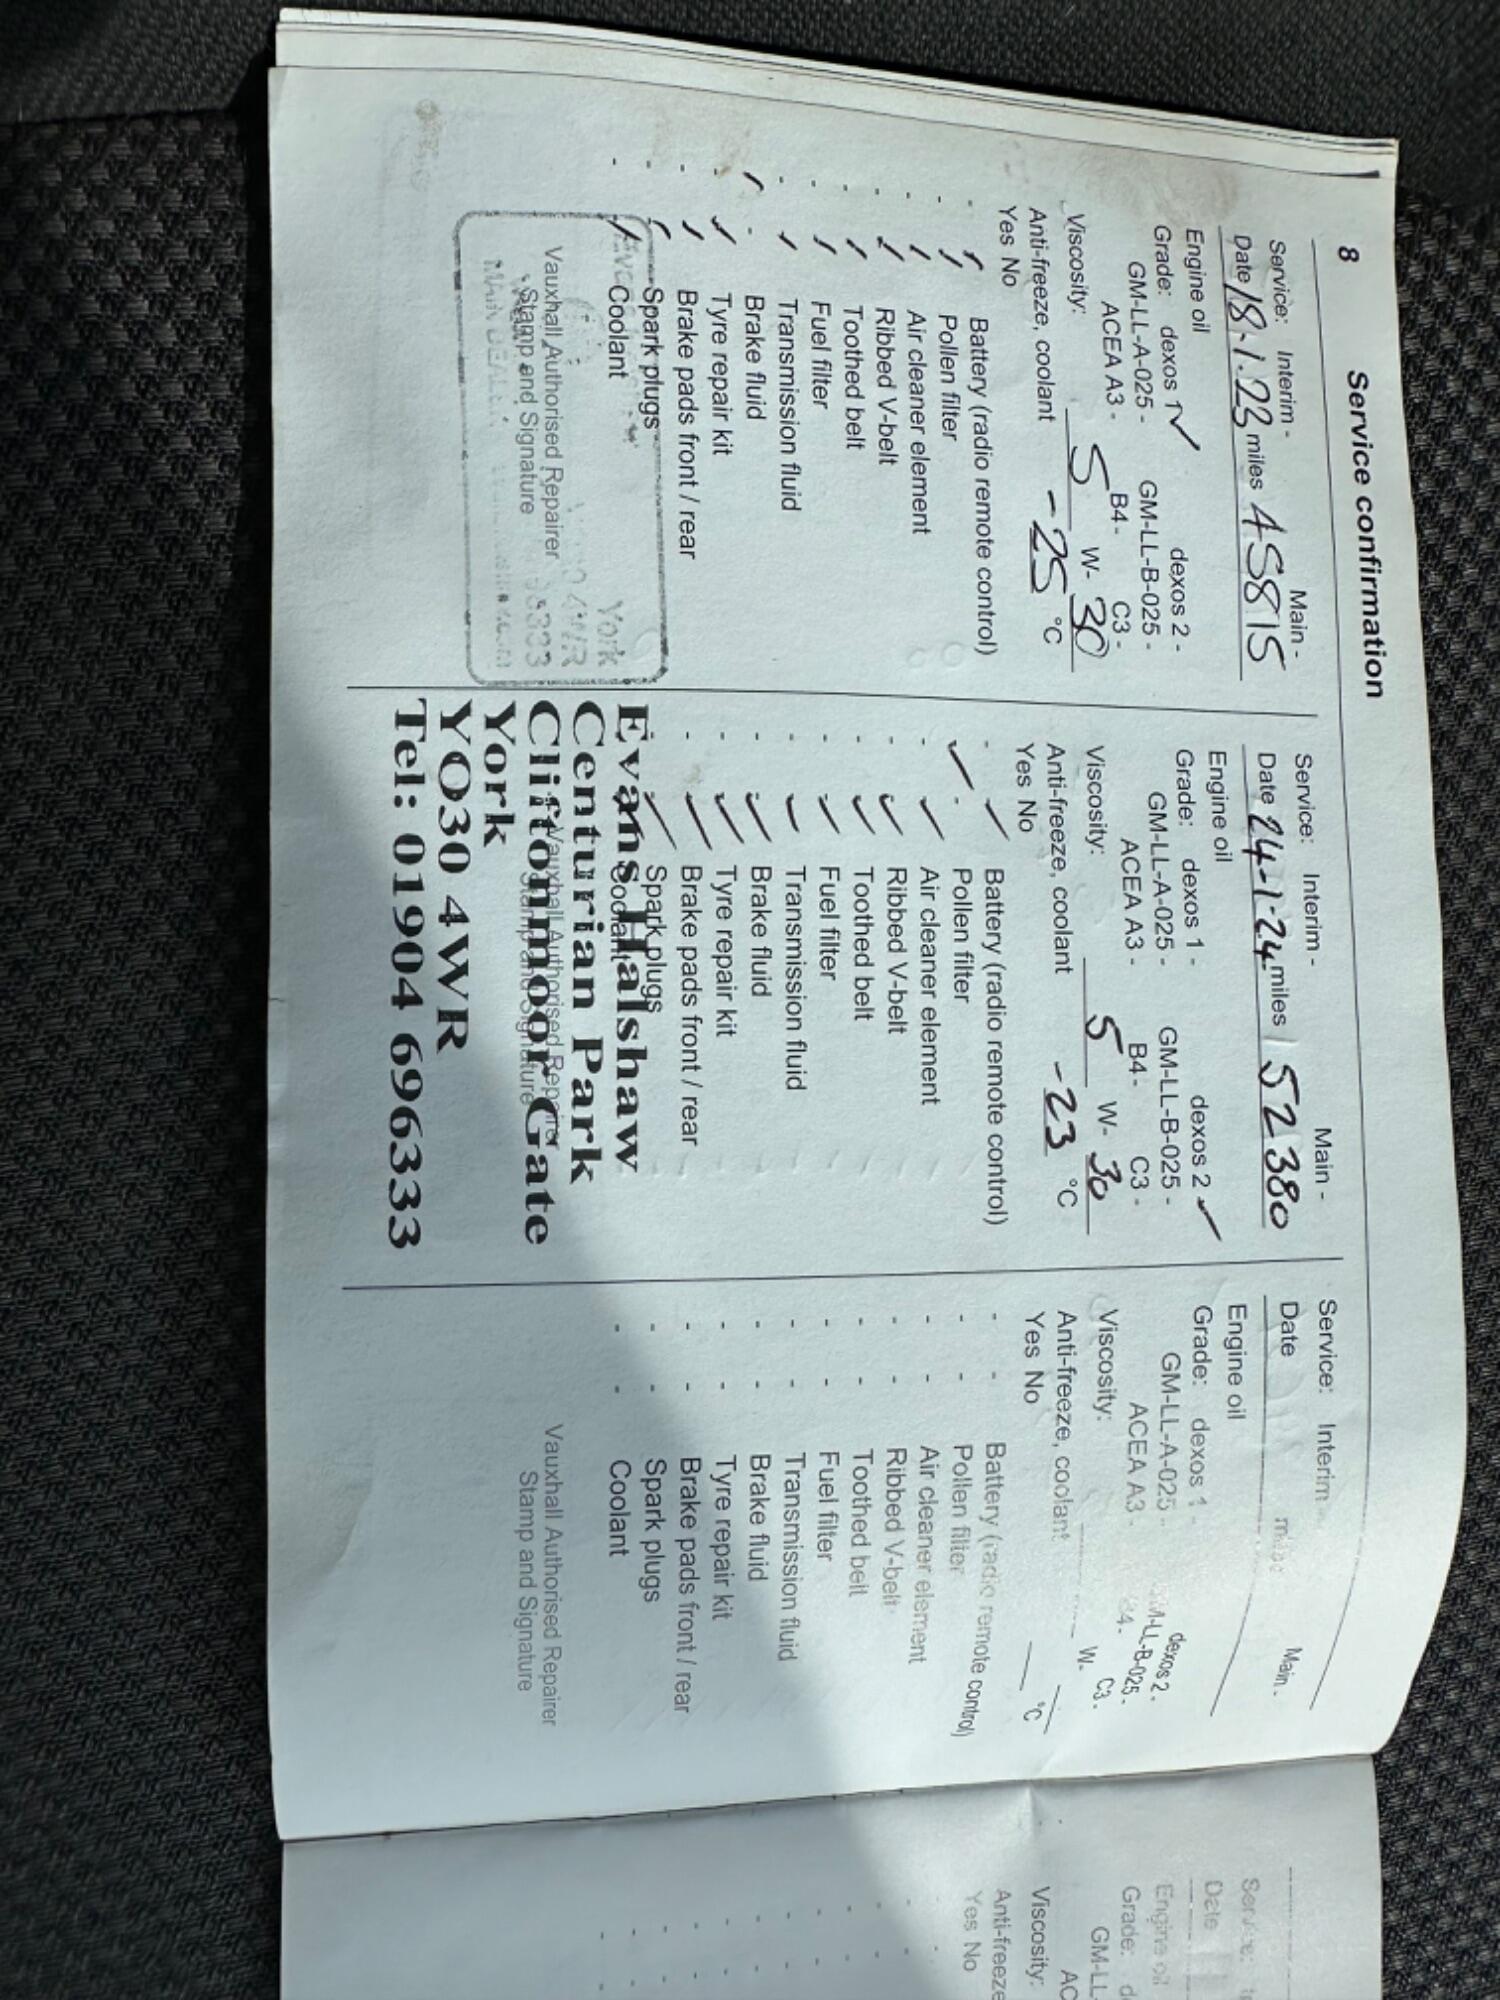 8 Service confirmation
Service: Interim - Main -
Date 18.1.23 miles 45815
Engine oil
Grade: dexos 1 ✓ dexos 2 -
GM-LL-A-025 - GM-LL-B-025 -
ACEA A3 - B4 - C3 -
Viscosity: 5 W- 30
Anti-freeze, coolant -25 °C
Yes No
- ✓ Battery (radio remote control)
- ✓ Pollen filter
- ✓ Air cleaner element
- ✓ Ribbed V-belt
- ✓ Toothed belt
- ✓ Fuel filter
- ✓ Transmission fluid
✓ - Brake fluid
- ✓ Tyre repair kit
- ✓ Brake pads front / rear
- ✓ Spark plugs
- ✓ Coolant
Vauxhall Authorised Repairer
Stamp and Signature
York
Service: Interim - Main -
Date 24-1-24 miles 52380
Engine oil
Grade: dexos 1 - dexos 2 ✓
GM-LL-A-025 - GM-LL-B-025 -
ACEA A3 - B4 - C3 -
Viscosity: 5 W- 30
Anti-freeze, coolant -23 °C
Yes No
- ✓ Battery (radio remote control)
✓ - Pollen filter
- ✓ Air cleaner element
- ✓ Ribbed V-belt
- ✓ Toothed belt
- ✓ Fuel filter
- ✓ Transmission fluid
- ✓ Brake fluid
- ✓ Tyre repair kit
- ✓ Brake pads front / rear
✓ Spark plugs
Coolant
Vauxhall Authorised Repairer
Stamp and Signature
Evans Halshaw
Centurian Park
Cliftonmoor Gate
York
YO30 4WR
Tel: 01904 696333
Service: Interim - Main -
Date miles
Engine oil
Grade: dexos 1 - dexos 2 -
GM-LL-A-025 - GM-LL-B-025 -
ACEA A3 - B4 - C3 -
Viscosity: W-
Anti-freeze, coolant °C
Yes No
- - Battery (radio remote control)
- - Pollen filter
- - Air cleaner element
- - Ribbed V-belt
- - Toothed belt
- - Fuel filter
- - Transmission fluid
- - Brake fluid
- - Tyre repair kit
- - Brake pads front / rear
- - Spark plugs
- - Coolant
Vauxhall Authorised Repairer
Stamp and Signature
Date
Engine oil
Grade:
GM-LL-
Viscosity:
Anti-freeze
Yes No